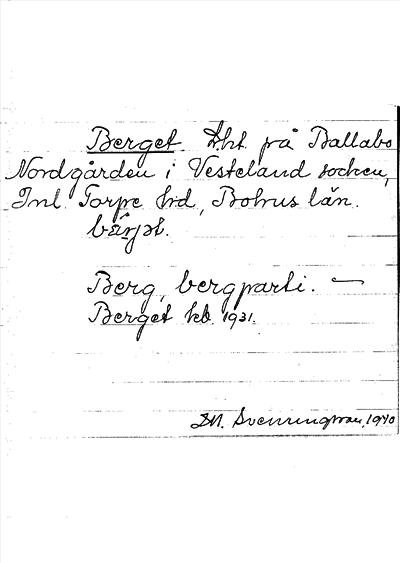 Berget. Lht på Ballabo
Nordgården i Vesterland socken,
Inl. Torpe hd, Bohus län.
bärjət.
Berg, bergparti. —
Berget kb. 1931.
Svenningsson, 1940